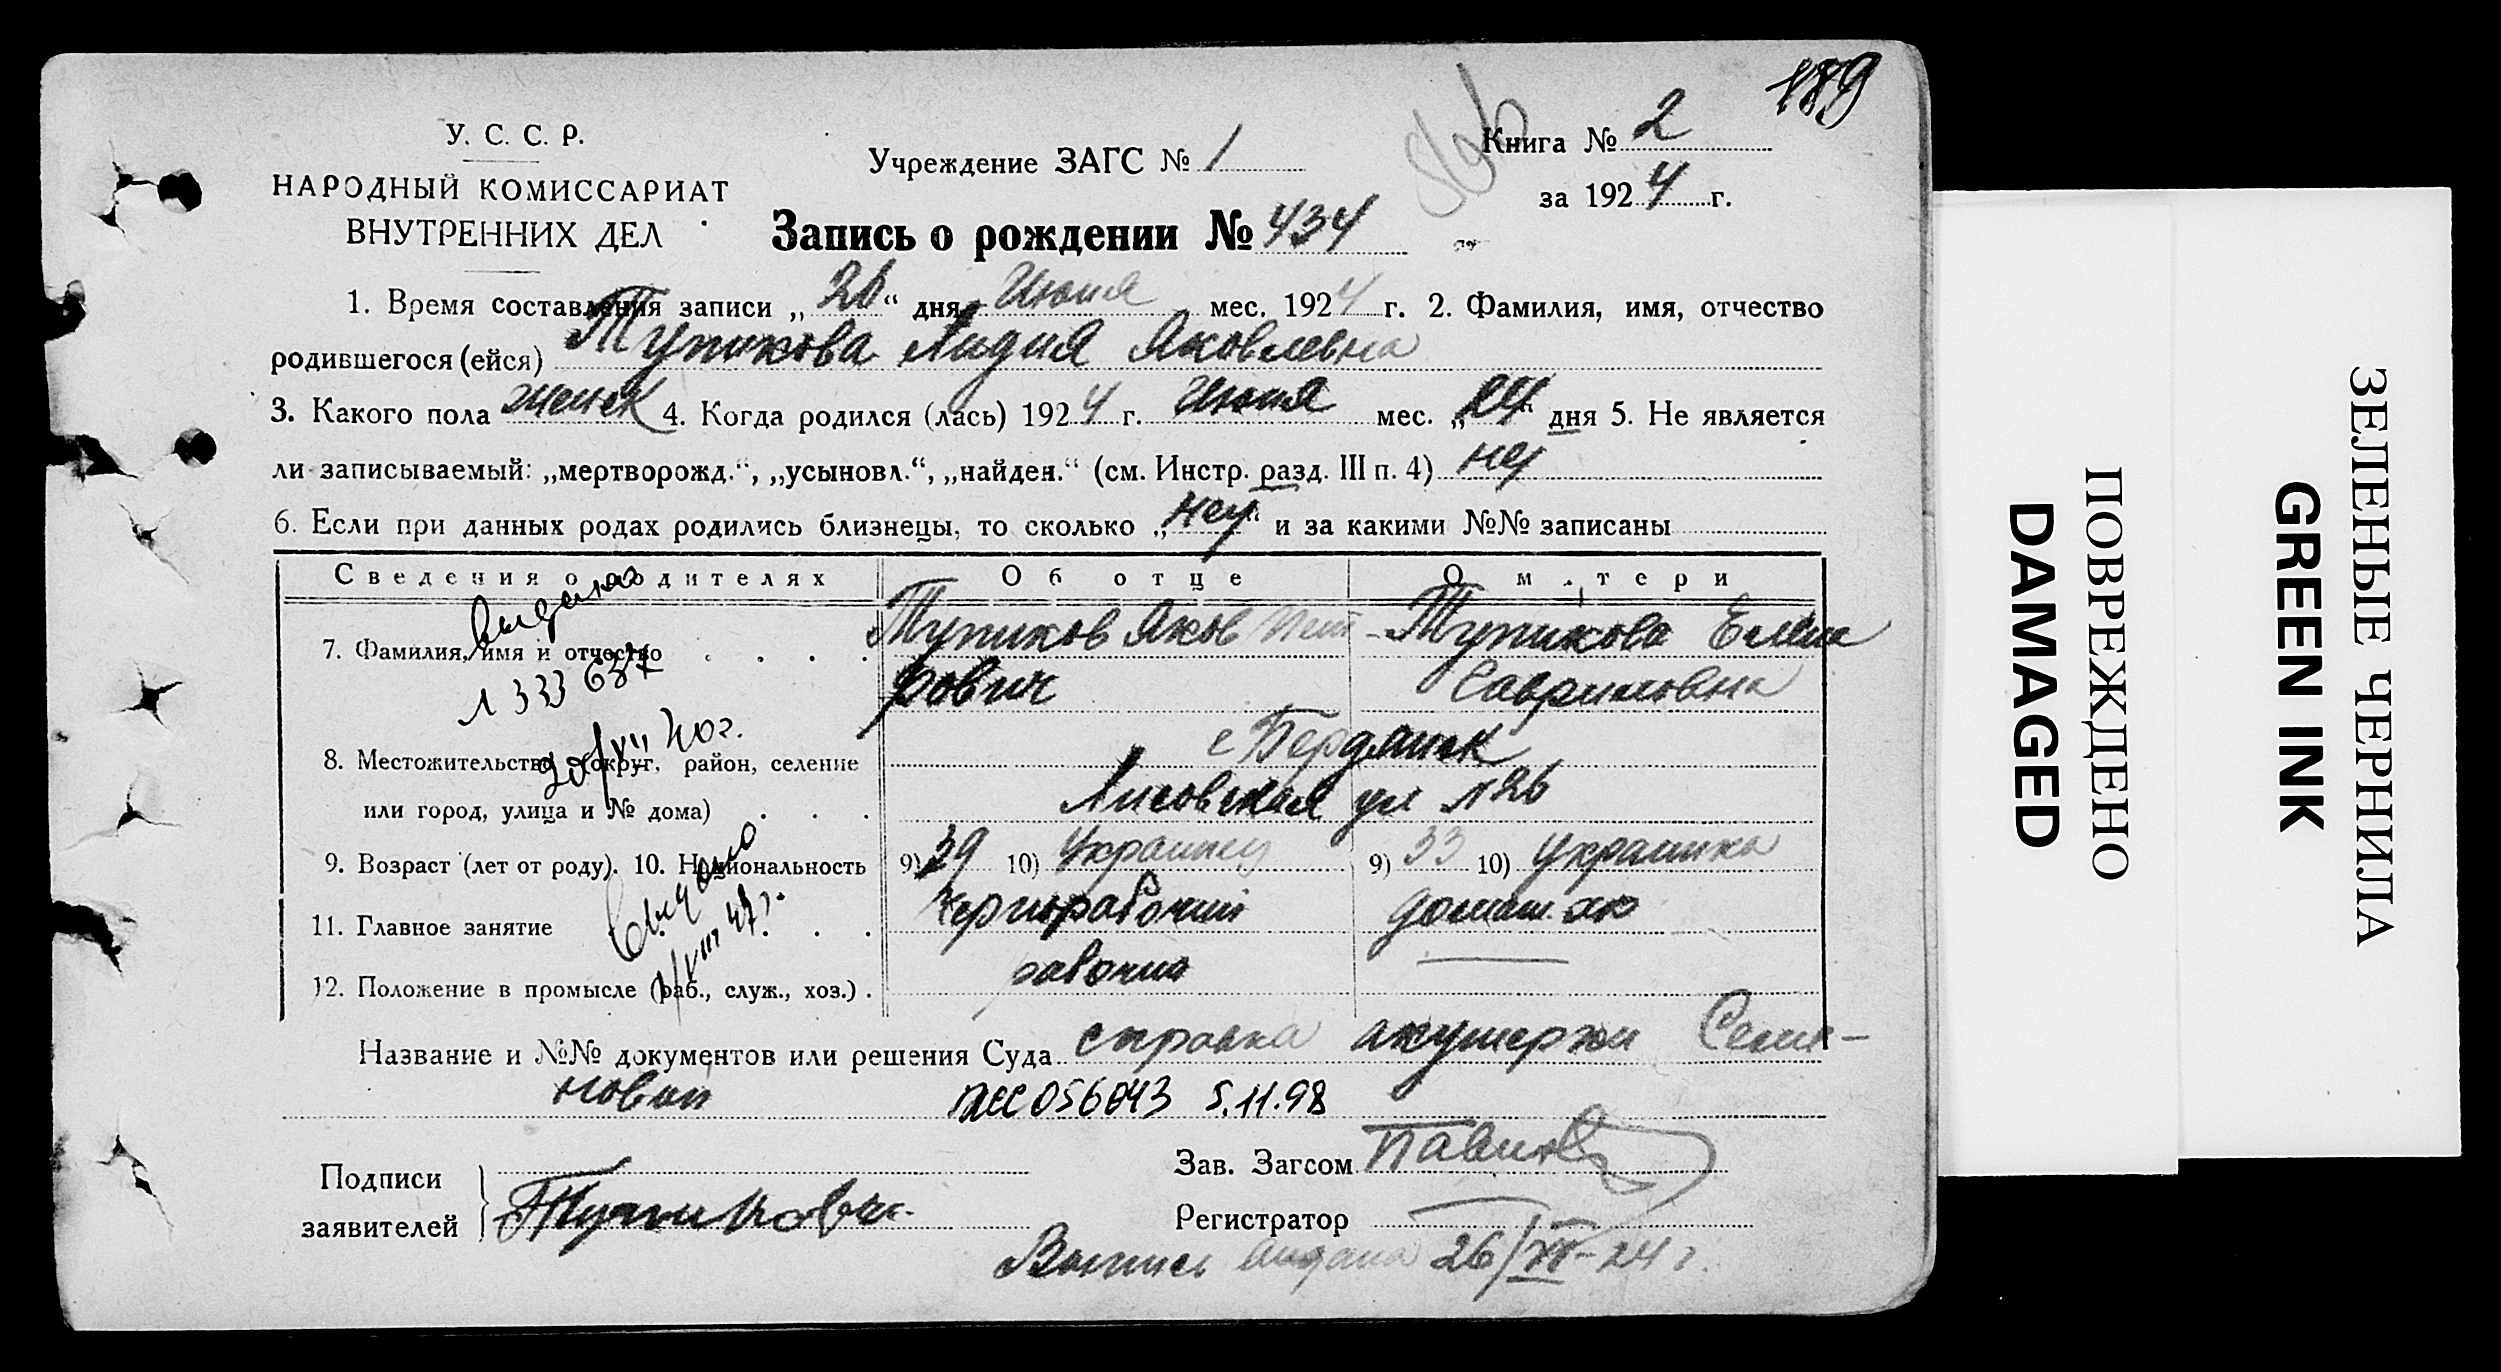 189
У. С. С. Р.
НАРОДНЫЙ КОМИССАРИАТ
ВНУТРЕННИХ ДЕЛ
Учреждение ЗАГС № 1
Книга № 2
за 1924 г.
Запись о рождении № 434
1. Время составления записи „26“ дня Июня мес. 1924 г. 2. Фамилия, имя, отчество
родившегося (ейся) Тупикова Лидия Яковлевна
3. Какого пола женск 4. Когда родился (лась) 1924 г. Июня мес. „14“ дня 5. Не является
ли записываемый: „мертворожд.“, „усыновл.“, „найден.“ (см. Инстр. разд. III п. 4) нет
6. Если при данных родах родились близнецы, то сколько „нет“ и за какими №№ записаны
Сведения о родителях Об отце О матери
выдано
7. Фамилия, имя и отчество Тупиков Яков Пет- Тупикова Елена
рович Гавриловна
Л 333637
8. Местожительство (округ, район, селение г Бердянск
или город, улица и № дома) Лисовская ул №26
9. Возраст (лет от роду). 10. Национальность 9) 39 10) Украинец 9) 33 10) украинка
Выдано
11. Главное занятие Чернорабочий домаш. хоз
12. Положение в промысле (раб., служ., хоз.) рабочий
Название и №№ документов или решения Суда справка акушерки Семе-
новой
056843 5.11.98
Подписи
заявителей Тупикова
Зав. Загсом Павлов
Регистратор
Выпись выдана 26/ -24 г.
ЗЕЛЕНЫЕ ЧЕРНИЛА
GREEN INK
ПОВРЕЖДЕНО
DAMAGED